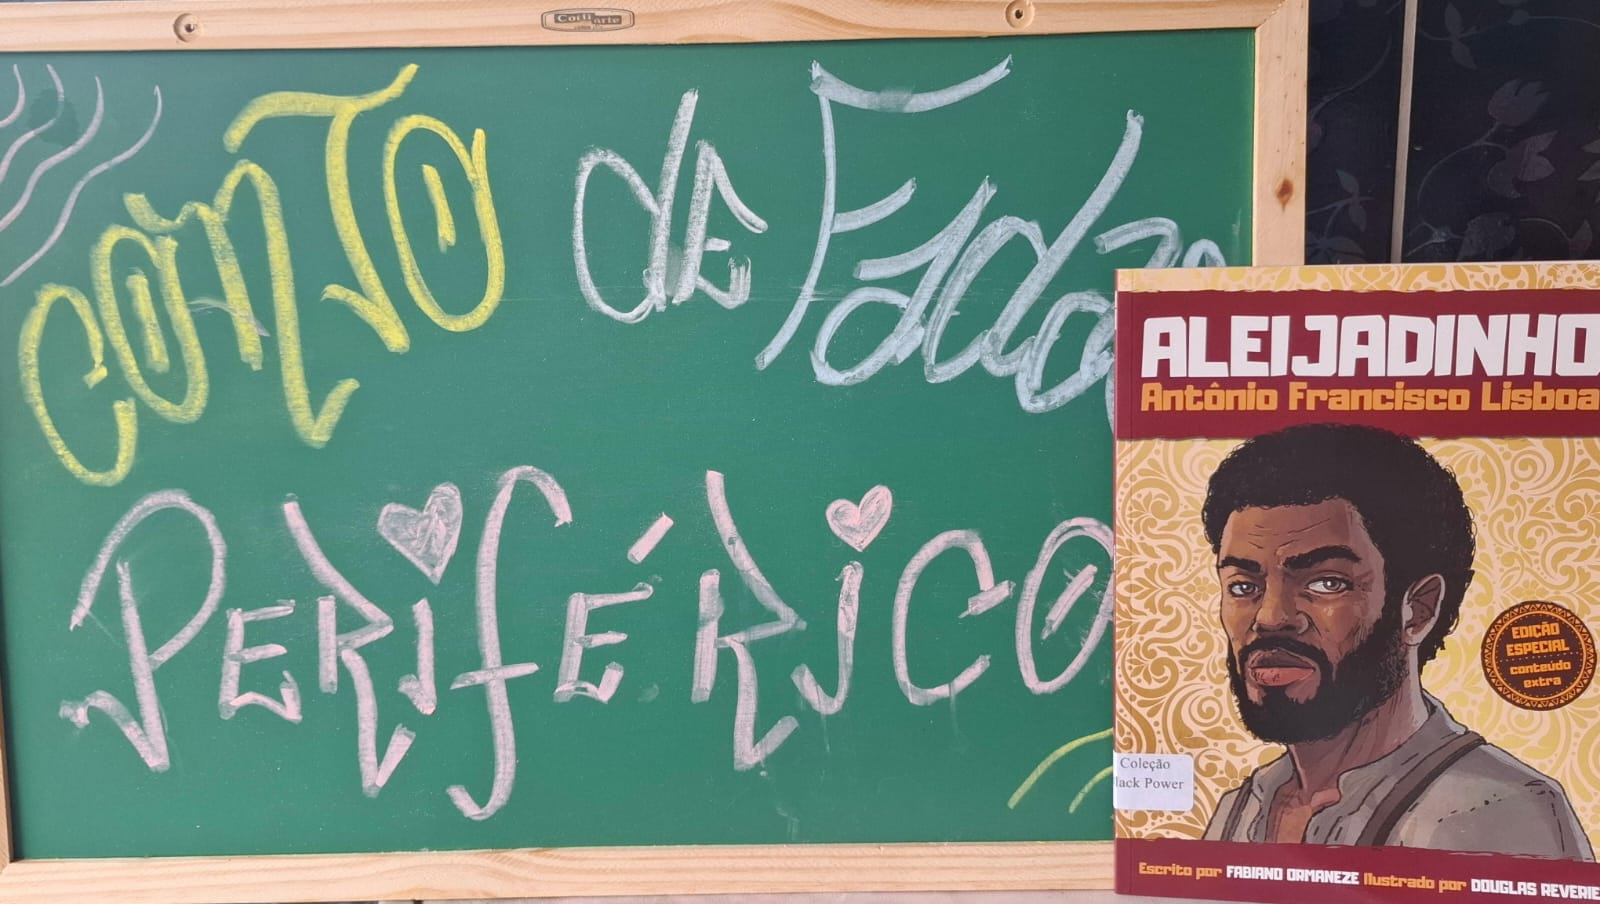 CONTO de Fada
PERIFÉRICO
ALEIJADINHO
Antônio Francisco Lisboa
EDIÇÃO
ESPECIAL
conteúdo
extra
Coleção
lack Power
Escrito por FABIANO ORMANEZE Ilustrado por DOUGLAS REVERIE